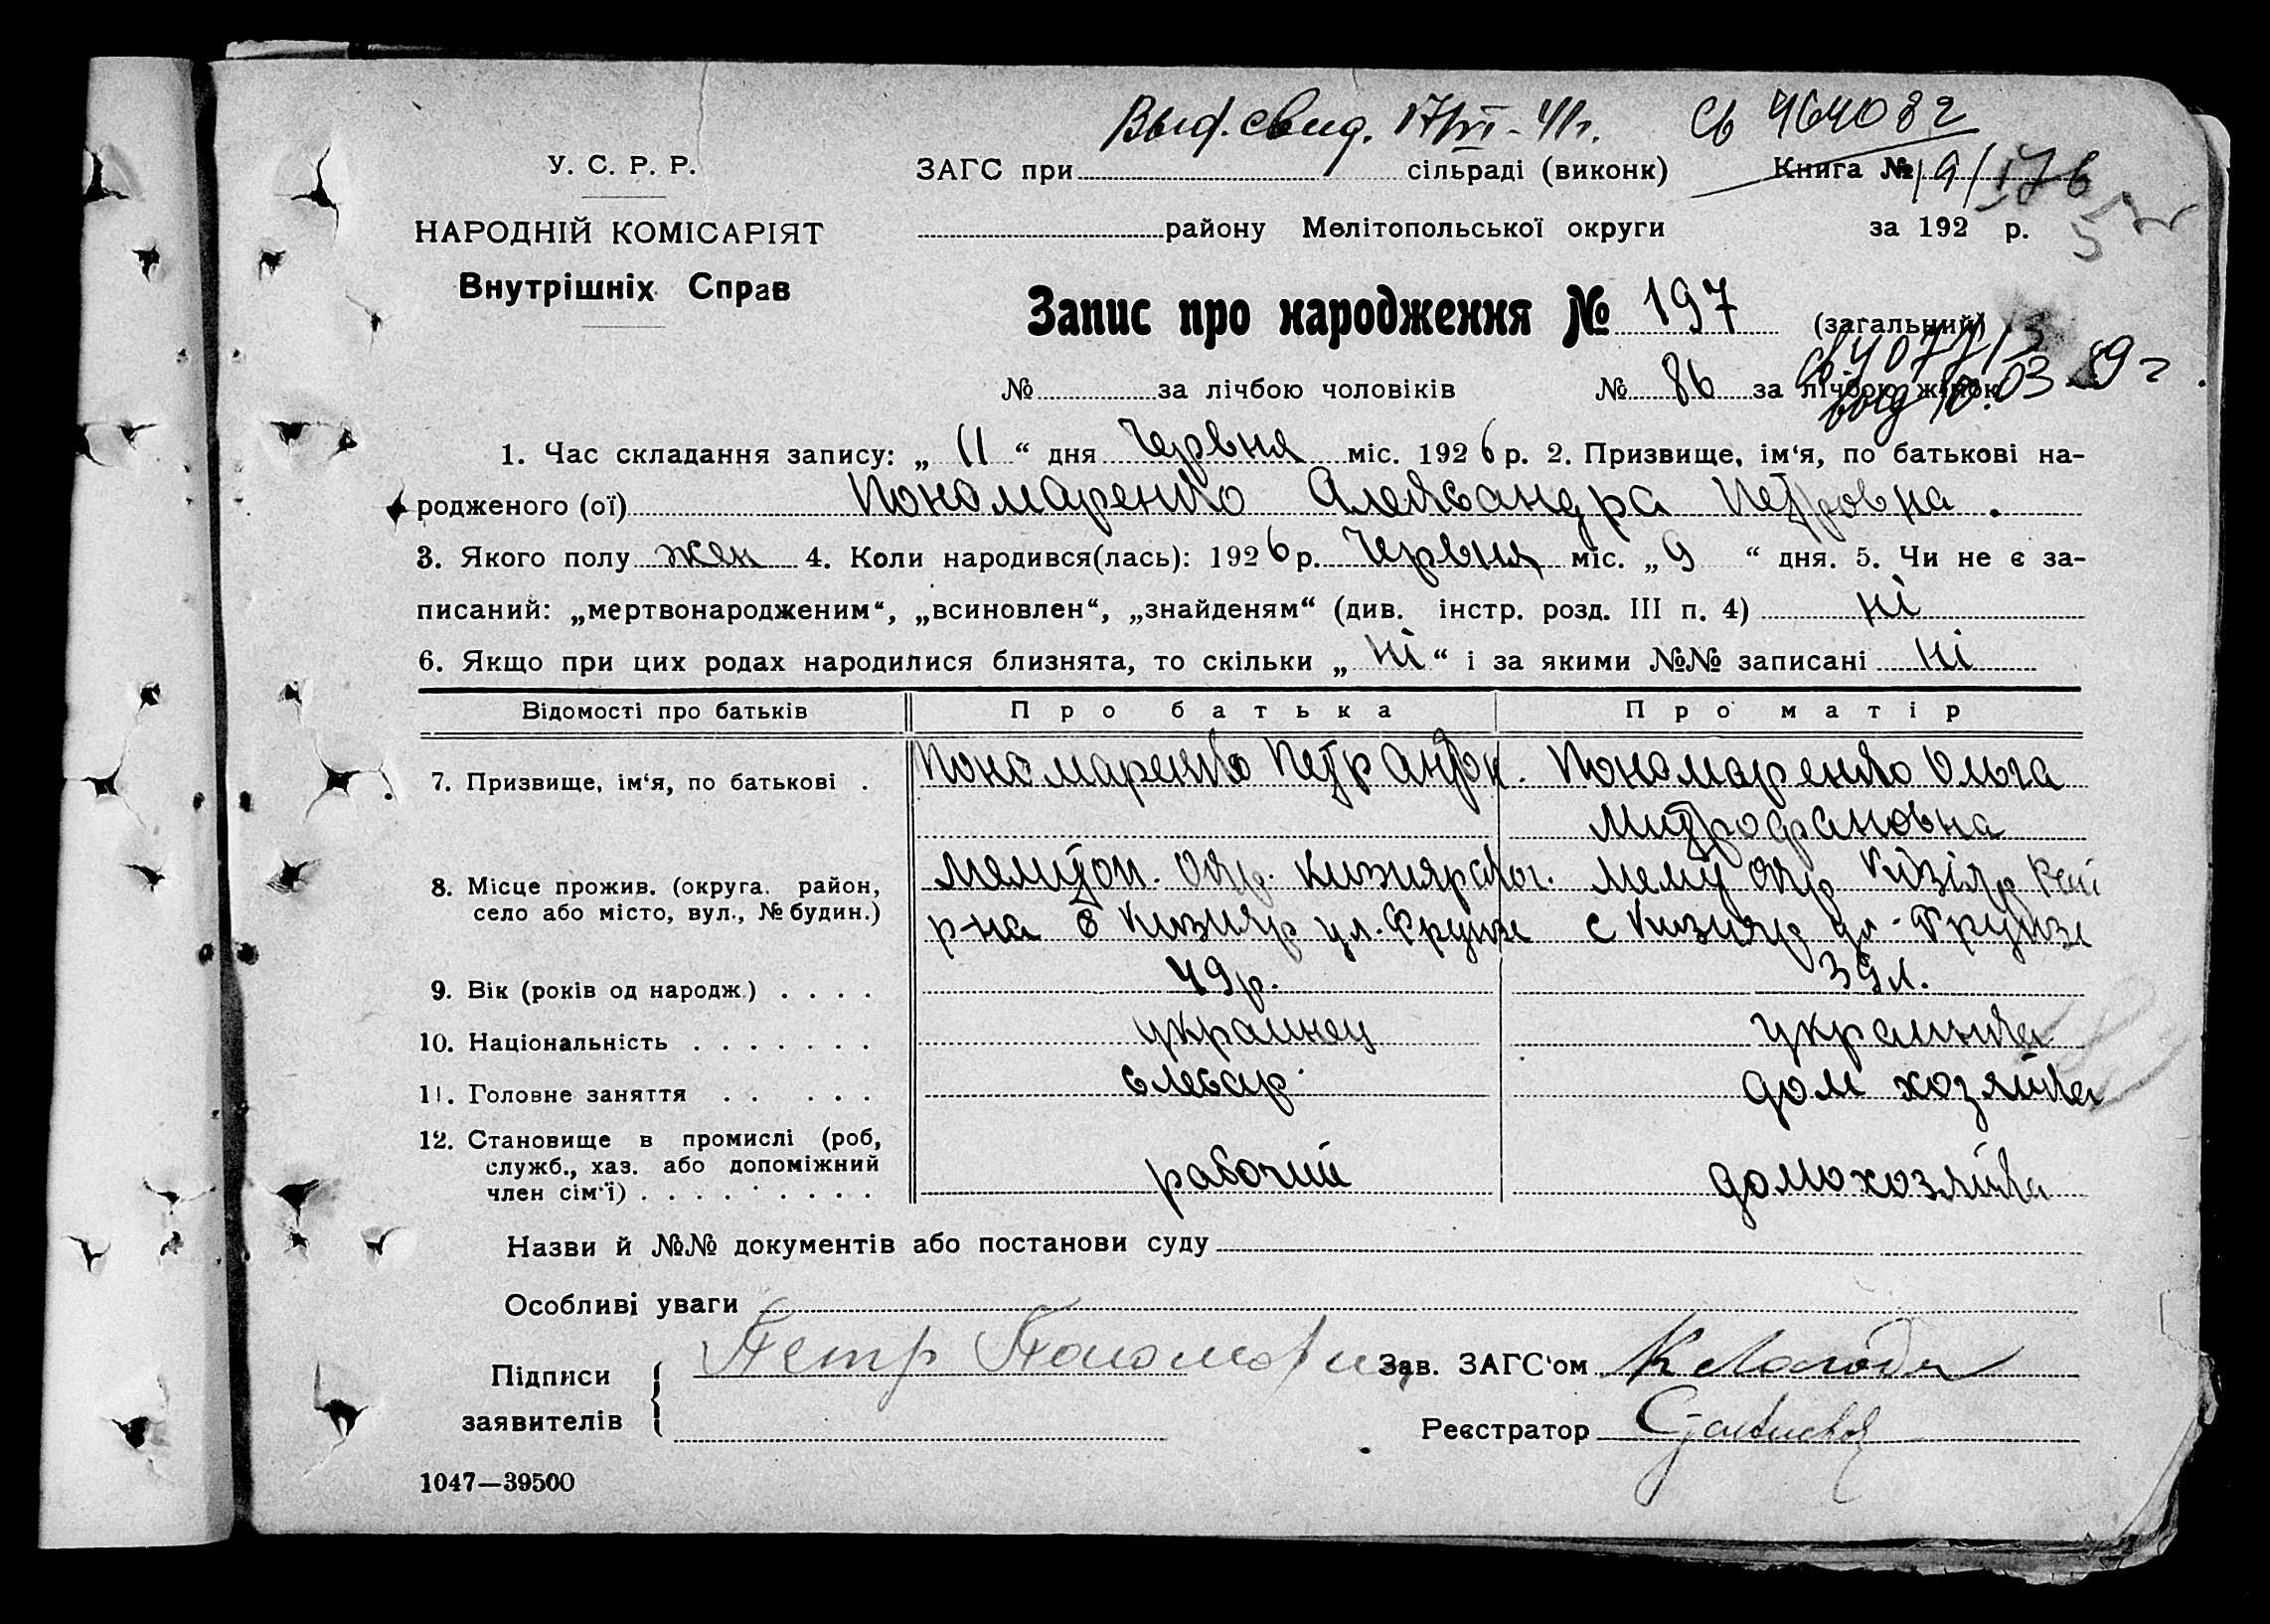 Выд. свид. 17/VI-41г. Сб 464082
У. С. Р. Р.
ЗАГС при сільраді (виконк) Книга №
НАРОДНІЙ КОМІСАРІЯТ
району Мелітопольської округи за 192 р.
Внутрішніх Справ
Запис про народження № 197 (загальний)
№ за лічбою чоловіків № 86 за лічбою жінок
1. Час складання запису: „ 11 “ дня Червня міс. 1926 р. 2. Призвище, ім‘я, по батькові на-
родженого (ої) Пономаренко Александра Петровна.
3. Якого полу жен 4. Коли народився(лась): 1926 р. Червня міс. „ 9 “ дня. 5. Чи не є за-
писаний: „мертвонародженим“, „всиновлен“, „знайденям“ (див. інстр. розд. III п. 4) ні
6. Якщо при цих родах народилися близнята, то скільки „ ні “ і за якими №№ записані ні
Відомості про батьків Про батька Про матір
7. Призвище, ім‘я, по батькові . Пономаренко Петр Антон. Пономаренко Ольга
Митрофановна
8. Місце прожив. (округа. район, Мелитоп. Окр. Кизиярског. Мелит Окр Кізіяр
село або місто, вул., № будин.) р-на с Кизияр ул. Фрунзе с Кизияр ул. Фрунзе
9. Вік (років од народж.) . . . . 49 р. 39 л.
10. Національність . . . . . . . украинец украинка
11. Головне заняття . . . . . слесар дом хозяйка
12. Становище в промислі (роб,
служб., хаз. або допоміжний
член сім‘ї) . . . . . . . . . рабочий домохозяйка
Назви й №№ документів або постанови суду
Особливі уваги
Підписи Петр Зав. ЗАГС‘ом
заявителів Реєстратор
1047—39500